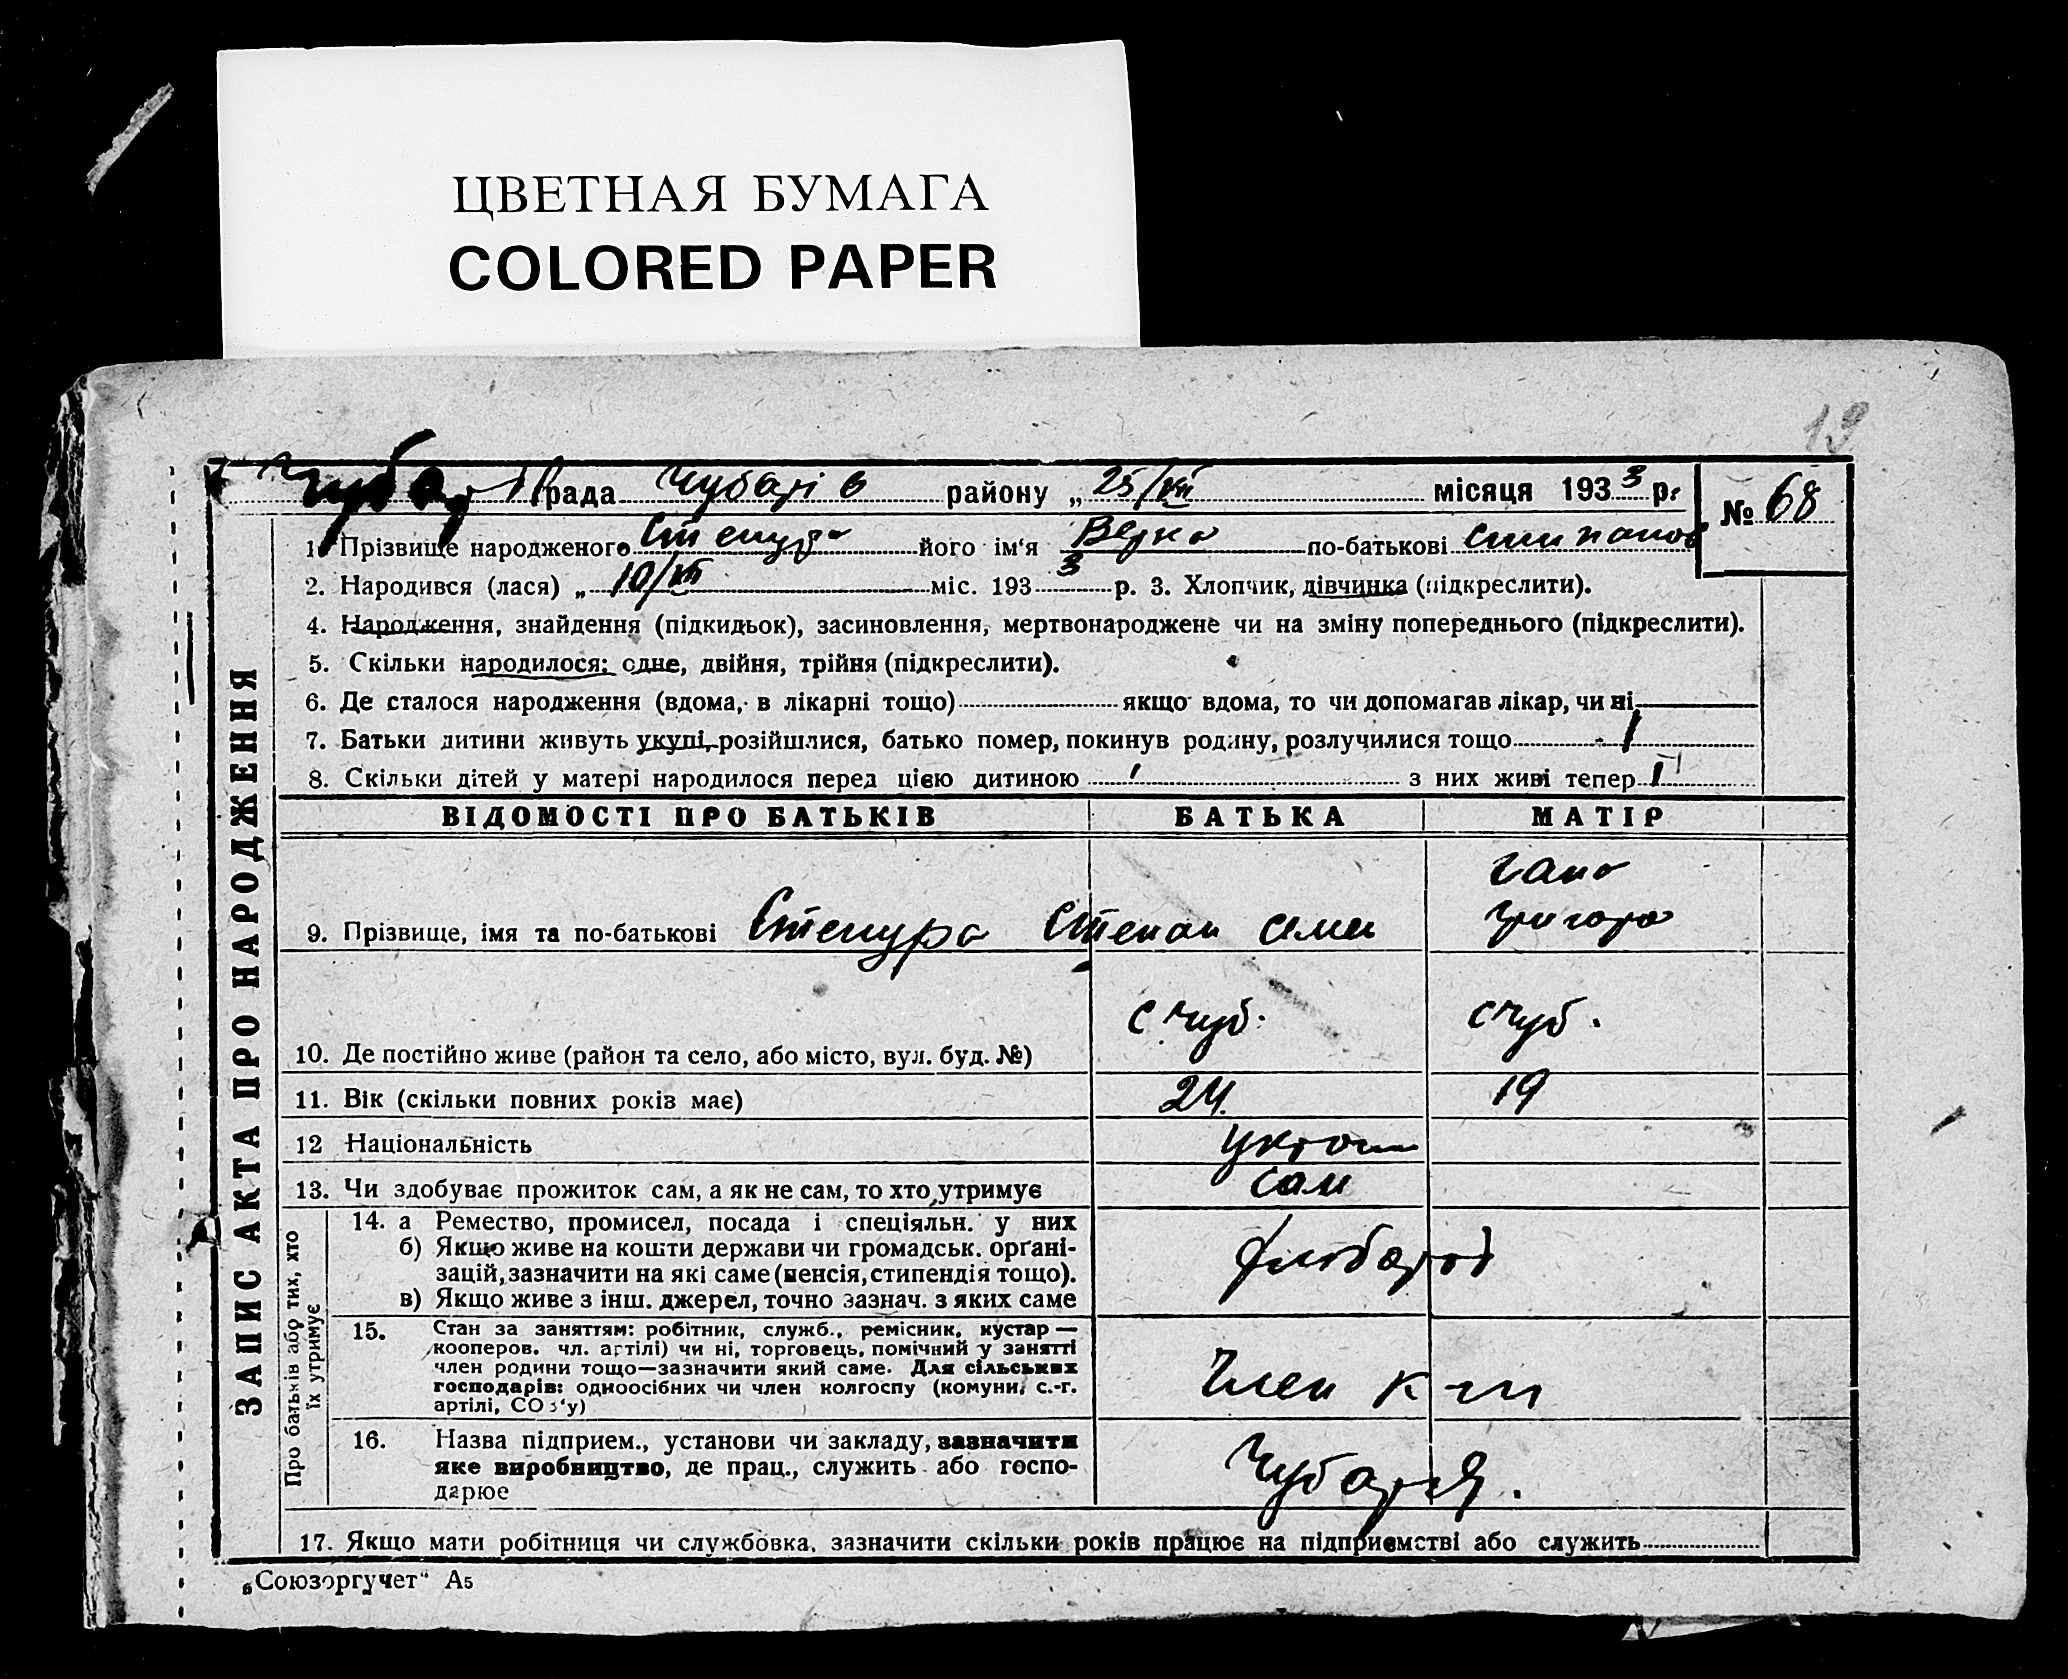 ЦВЕТНАЯ БУМАГА
COLORED PAPER
19
рада Чубарів району „ 25/VII місяця 1933 р.
№ 68
1. Прізвище народженого його ім'я Вера по-батькові
2. Народився (лася) „ 10/VII міс. 1933 р. 3. Хлопчик, дівчинка (підкреслити).
4. Народження, знайдення (підкидьок), засиновлення, мертвонароджене чи на зміну попереднього (підкреслити).
5. Скільки народилося: одне, двійня, трійня (підкреслити).
6. Де сталося народження (вдома, в лікарні тощо) якщо вдома, то чи допомагав лікар, чи ні
7. Батьки дитини живуть укупі, розійшлися, батько помер, покинув родину, розлучилися тощо
8. Скільки дітей у матері народилося перед цією дитиною 1 з них живі тепер 1
ЗАПИС АКТА ПРО НАРОДЖЕННЯ
ВІДОМОСТІ ПРО БАТЬКІВ БАТЬКА МАТІР
9. Прізвище, імя та по-батькові Степура Степан Гана
10. Де постійно живе (район та село, або місто, вул. буд. №) с Чуб. с Чуб.
11. Вік (скільки повних років має) 24. 19
12 Національність
13. Чи здобуває прожиток сам, а як не сам, то хто утримує сам
Про батьків або тих, хто
їх утримує
14. а Ремество, промисел, посада і спеціяльн. у них
б) Якщо живе на кошти держави чи громадськ. орґані-
зацій, зазначити на які саме (пенсія, стипендія тощо).
в) Якщо живе з інш. джерел, точно зазнач. з яких саме
хлібороб
15. Стан за заняттям: робітник, служб., ремісник, кустар —
кооперов. чл. артілі) чи ні, торговець, помічний у занятті
член родини тощо—зазначити який саме. Для сільських
господарів: одноосібних чи член колгоспу (комуни, с.-г.
артілі, СОЗ'у)
Член
16. Назва підприєм., установи чи закладу, зазначити
яке виробництво, де прац., служить або госпо-
дарює
17. Якщо мати робітниця чи службовка, зазначити скільки років працює на підприємстві або служить
„Союзоргучет“ А5